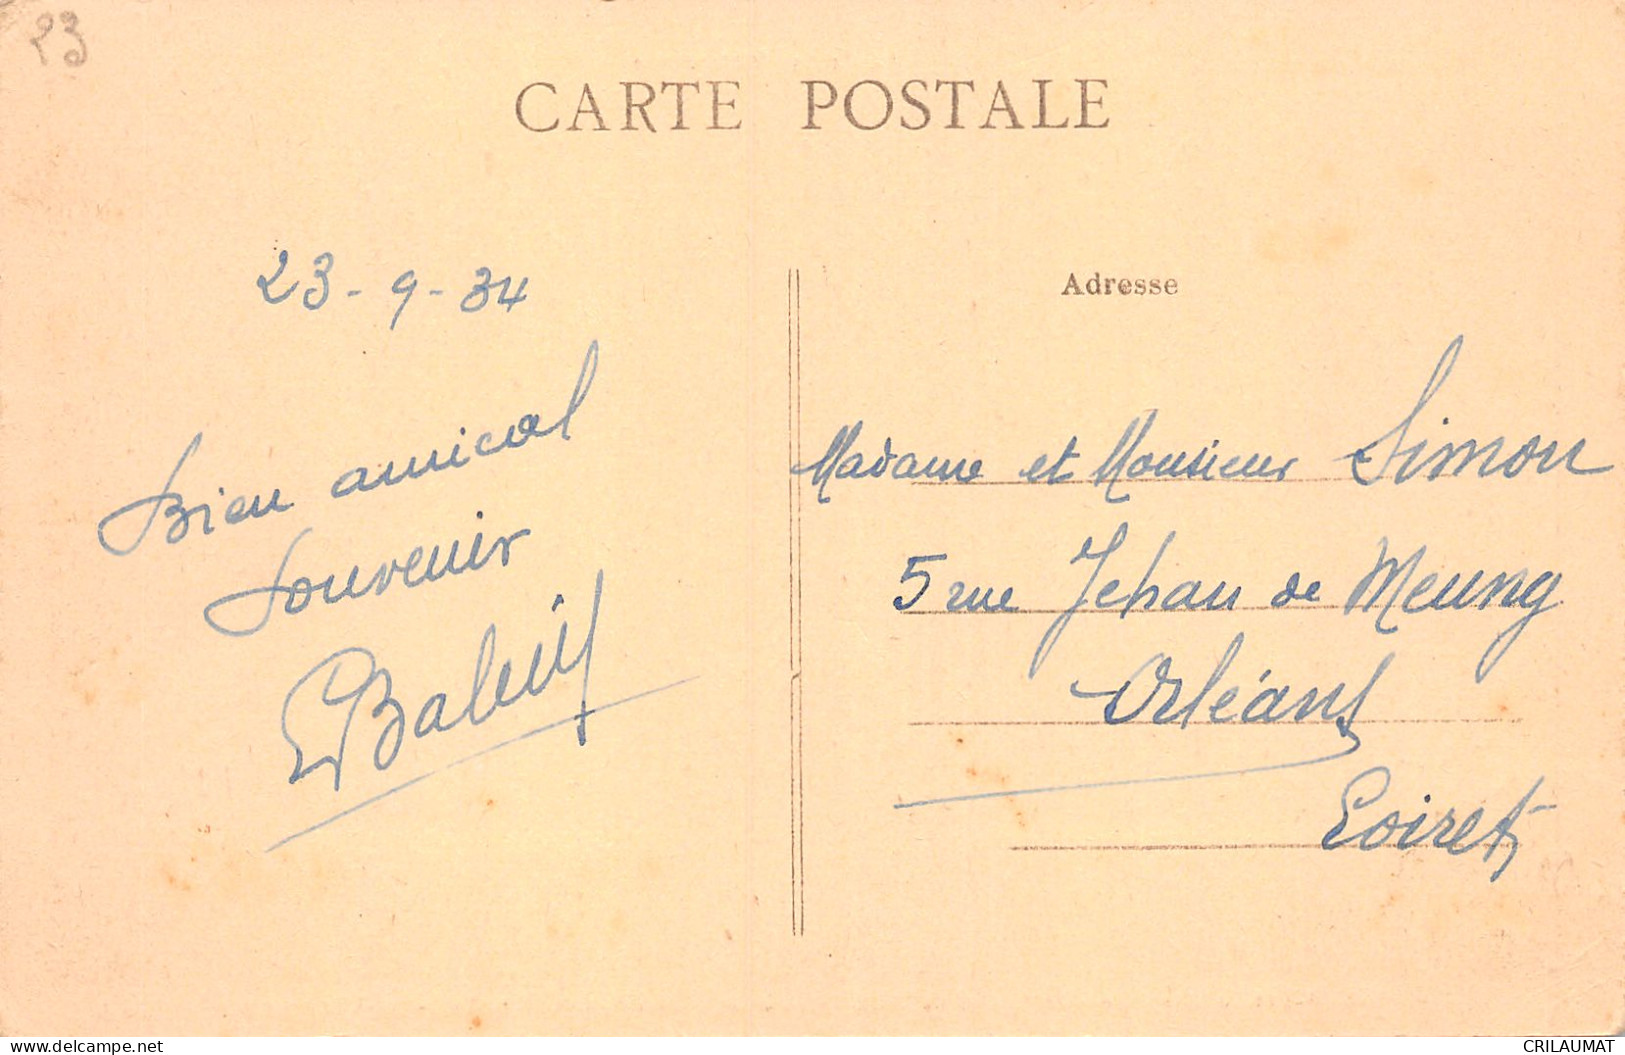 23
CARTE POSTALE
23-9-34
Bien amical
souvenir
Adresse
Madame et Monsieur Simon
5 rue Jehan de Meung
Orléans
Loiret
delcampe.net
CRILAUMAT